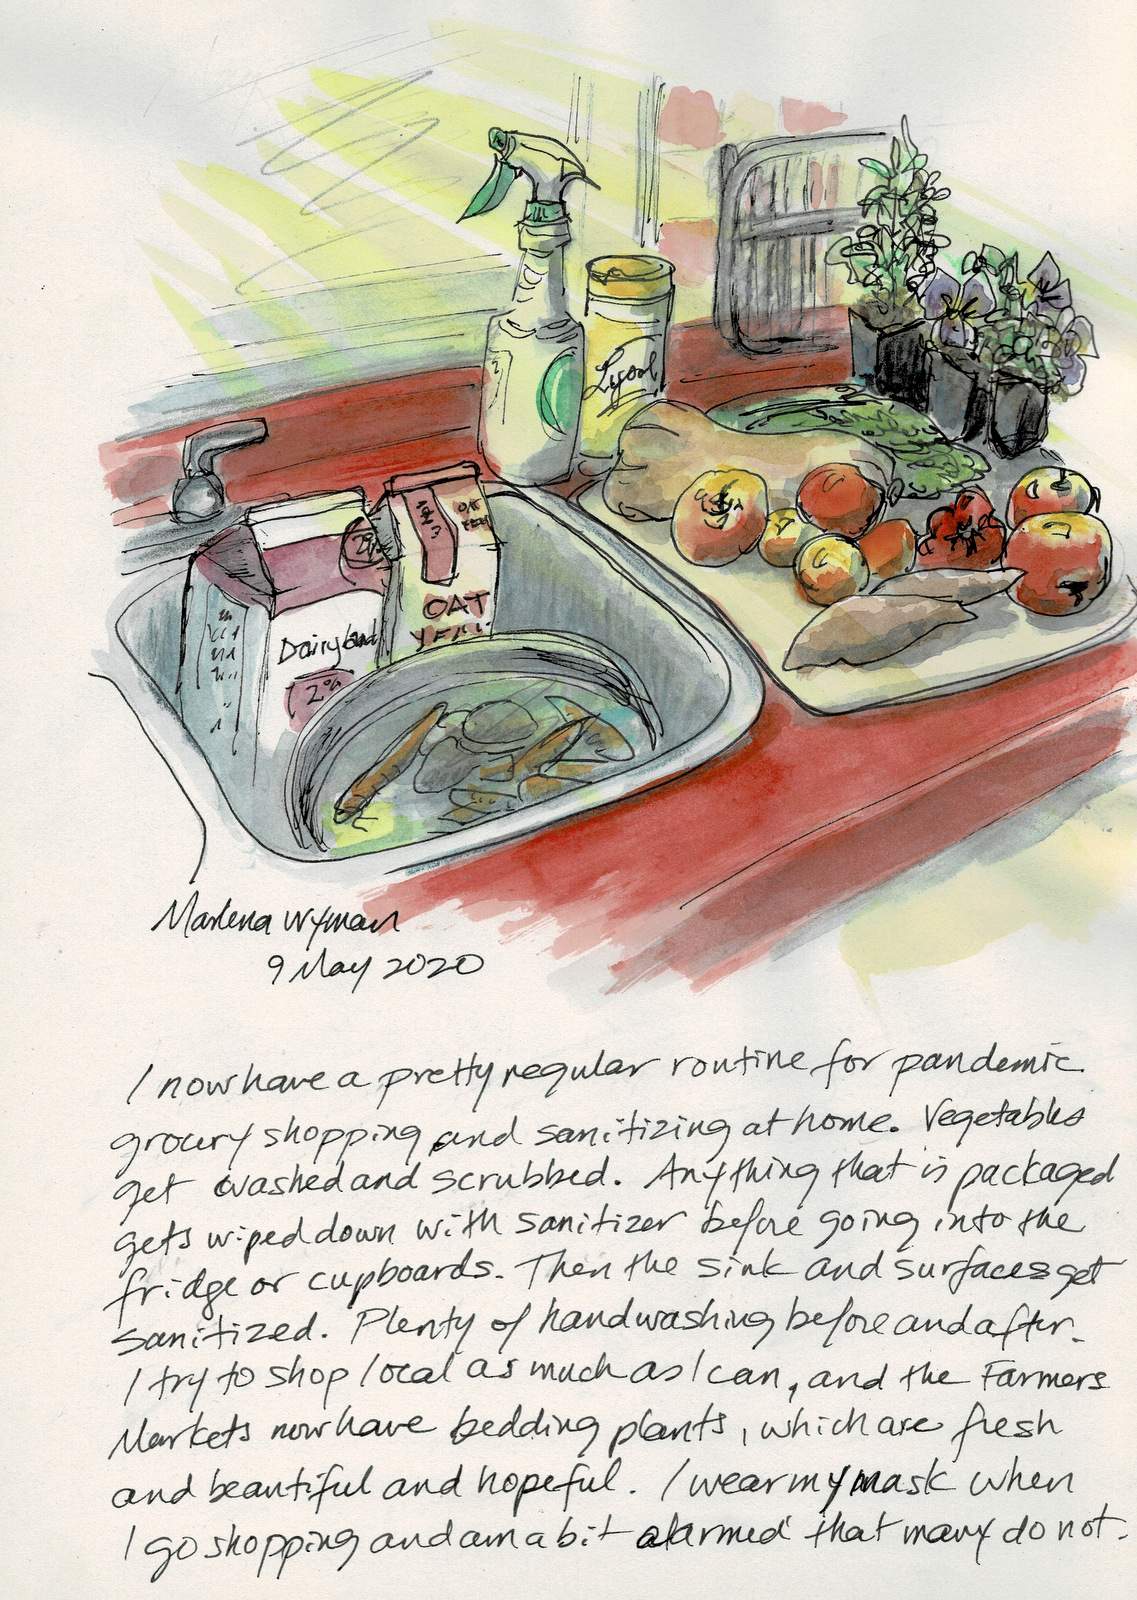 Lysol
2%
OAT
Dairyland
2%
Marlena Wyman
9 May 2020
I now have a pretty regular routine for pandemic
grocery shopping and sanitizing at home. Vegetables
get washed and scrubbed. Anything that is packaged
gets wiped down with sanitizer before going into the
fridge or cupboards. Then the sink and surfaces get
sanitized. Plenty of handwashing before and after.
I try to shop local as much as I can, and the Farmers
Markets now have bedding plants, which are fresh
and beautiful and hopeful. I wear my mask when
I go shopping and am a bit alarmed that many do not.